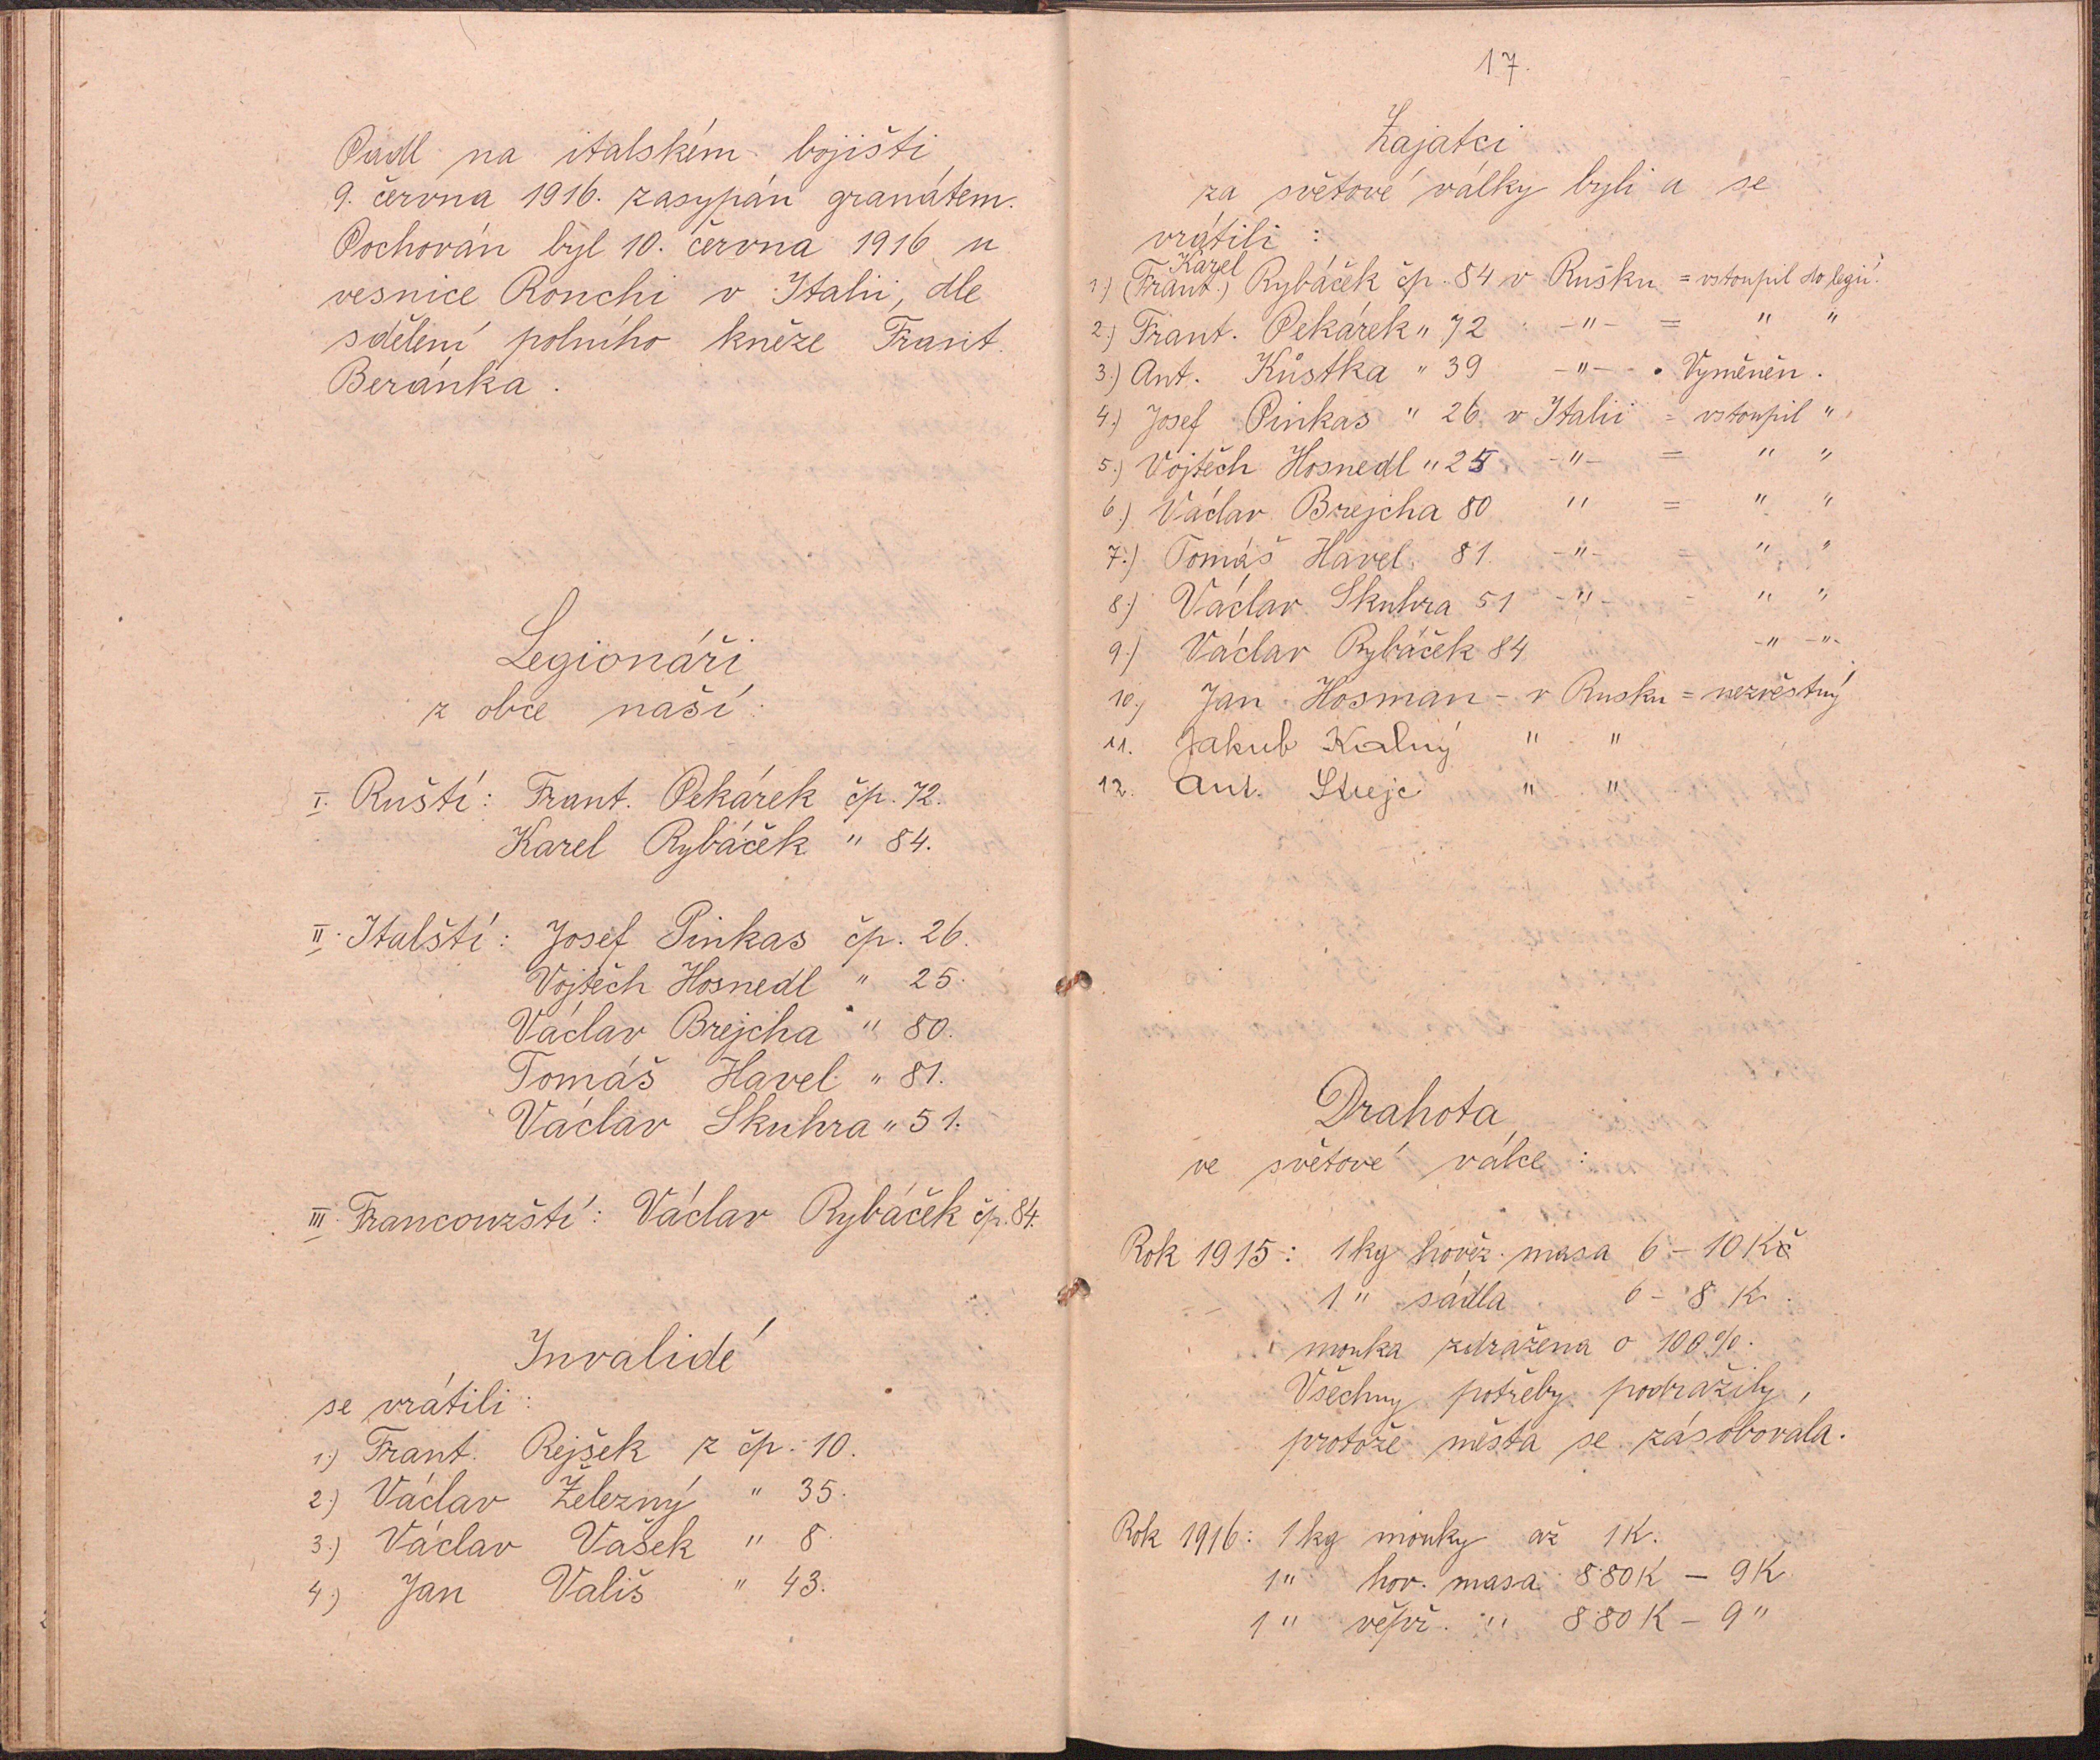 Padl na italském bojišti
9. června 1916. zasypán granátem.
Pochován byl 10. června 1916 u
vesnice Ronchi v Italii, dle
sdělení polního kněze Frant.
Beránka.
Legionáři
z obce naší:
I. Ruští: Frant. Pekárek čp. 72.
Karel Rybáček " 84.
II. Italští: Josef Pinkas čp. 26.
Vojtěch Hosnedl " 25.
Václav Brejcha " 80.
Tomáš Havel " 81.
Václav Skuhra " 51.
III. Francouzští: Václav Rybáček čp. 84.
Invalidé
se vrátili:
1.) Frant. Rejšek z čp. 10.
2.) Václav Železný " 35.
3.) Václav Vašek " 8.
4.) Jan Vališ " 43.
17.
Zajatci
za světové války byli a se
vrátili:
Karel
1.) (Frant.) Rybáček čp. 84 v Rusku = vstoupil do legií.
2.) Frant. Pekárek " 72 -"- = " "
3.) Ant. Kůstka " 39 -"- . Vyměněn.
4.) Josef Pinkas " 26 v Italii = vstoupil "
5.) Vojtěch Hosnedl " 25 -"- = " "
6.) Václav Brejcha 80 " = " "
7.) Tomáš Havel 81. -"- = " "
8.) Václav Skuhra 51 -"- - " "
9.) Václav Rybáček 84 -"- -"-
10.) Jan Hosman - v Rusku = nezvěstný
11. Jakub Kalný " "
12. Ant. Strejc " "
Drahota
ve světové válce:
Rok 1915: 1 kg hověz. masa 6 - 10 Kč
1 " sádla 6 - 8 K.
mouka zdražena o 100%.
Všechny potřeby podražily,
protože města se zásobovala.
Rok 1916: 1 kg mouky až 1 K.
1 " hov. masa 8·80 K - 9 K
1 " vepř. " 8·80 K - 9 "